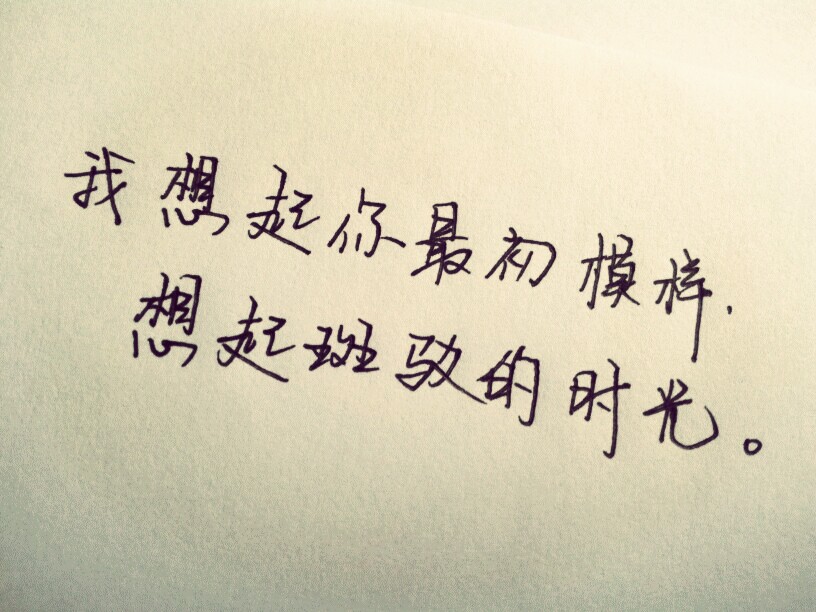 我想起你最初模样,
想起斑驳的时光。